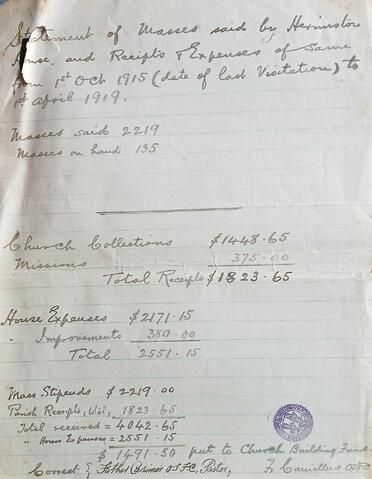 Statement of Masses said by Herminston
House, and Receipts & Expenses of same
from 1st Oct 1915 (date of last Visitation) to
1st April 1919.
Masses said 2219
Masses on hand 135
Church Collections $1448.65
Missions 375.00
Total Receipts $1823.65
House Expenses $2171.15
" Improvements 380.00
Total 2551.15
Mass Stipends $2219.00
Parish Receipts, 1823.65
Total received = 4042.65
" House Expenses = 2551.15
$1491.50 put to Church Building Fund.
Correct { Father O.S.F.C., Pastor, Fr Camillus O.S.F.C.